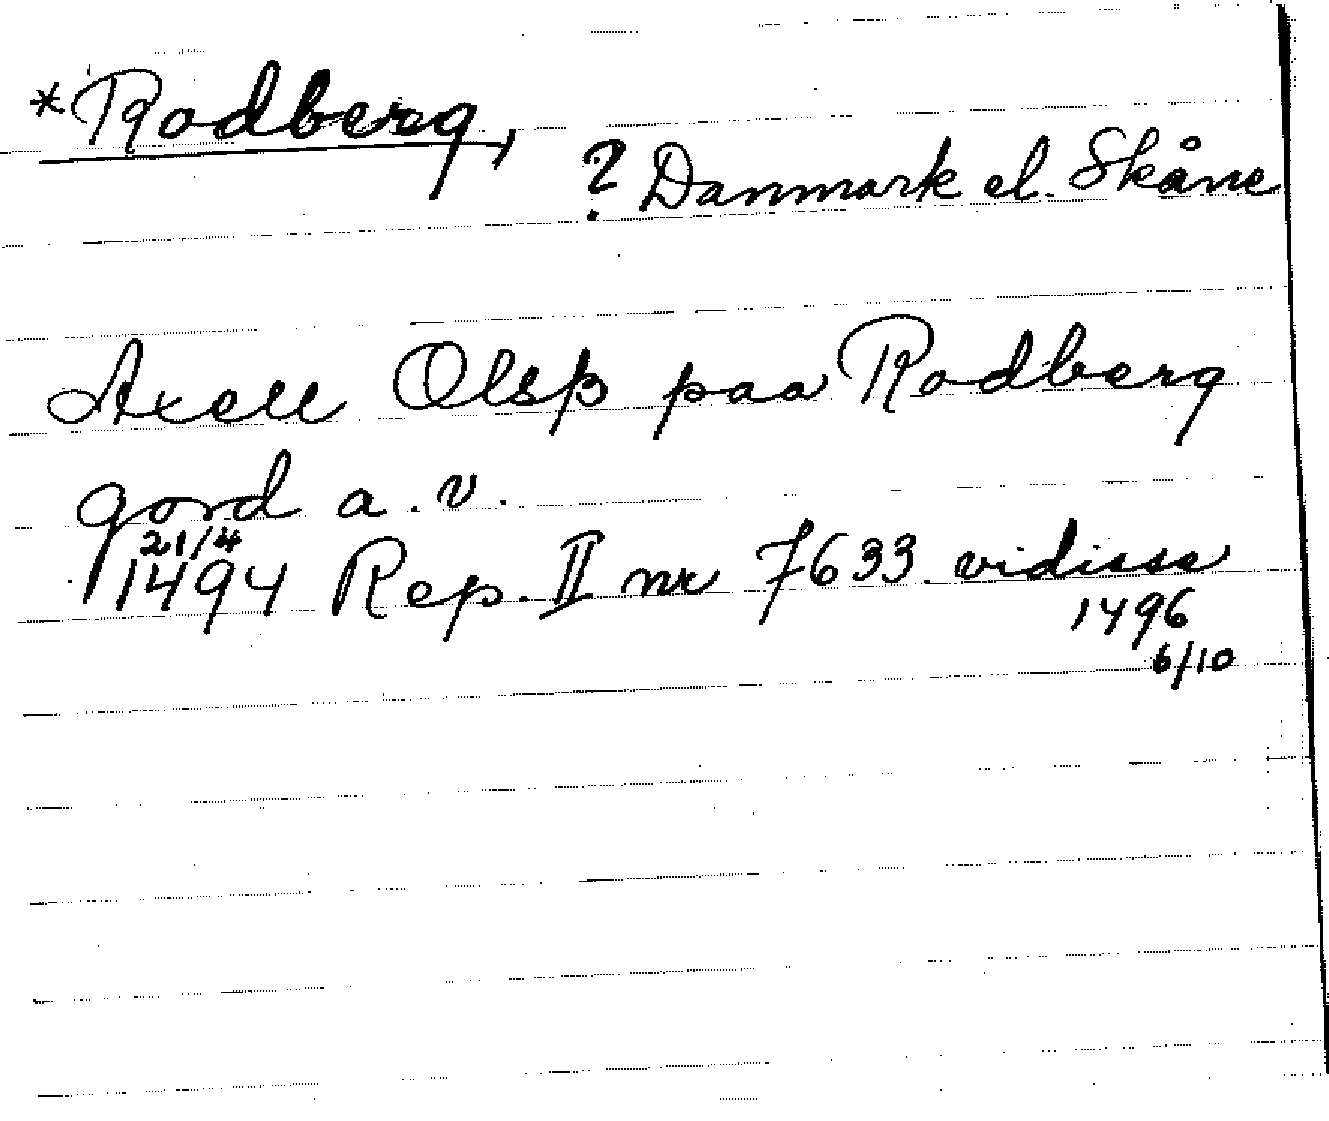 *Rodberg,
? Danmark el. Skåne
Axell Olsß paa Rodberg
gord a. v.
21/4
1494 Rep. II nr 7633 vidisse
1496
6/10